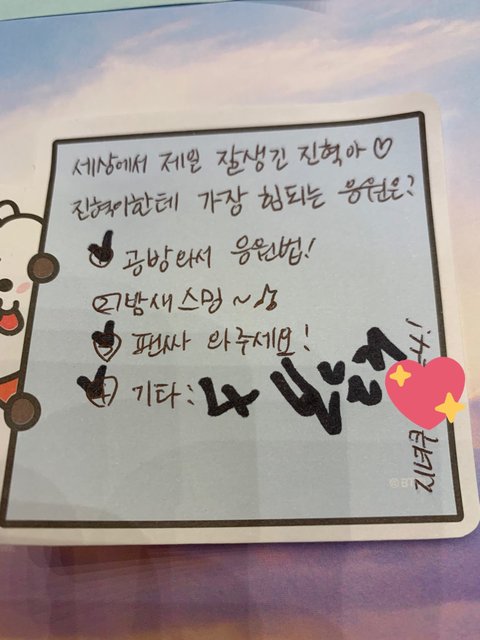 세상에서 제일 잘생긴 진혁아♡
진혁이한테 가장 힘되는 응원은?
① 공방와서 응원법!
② 밤새스밍~♪
③ 팬싸 와주세요!
④ 기타: